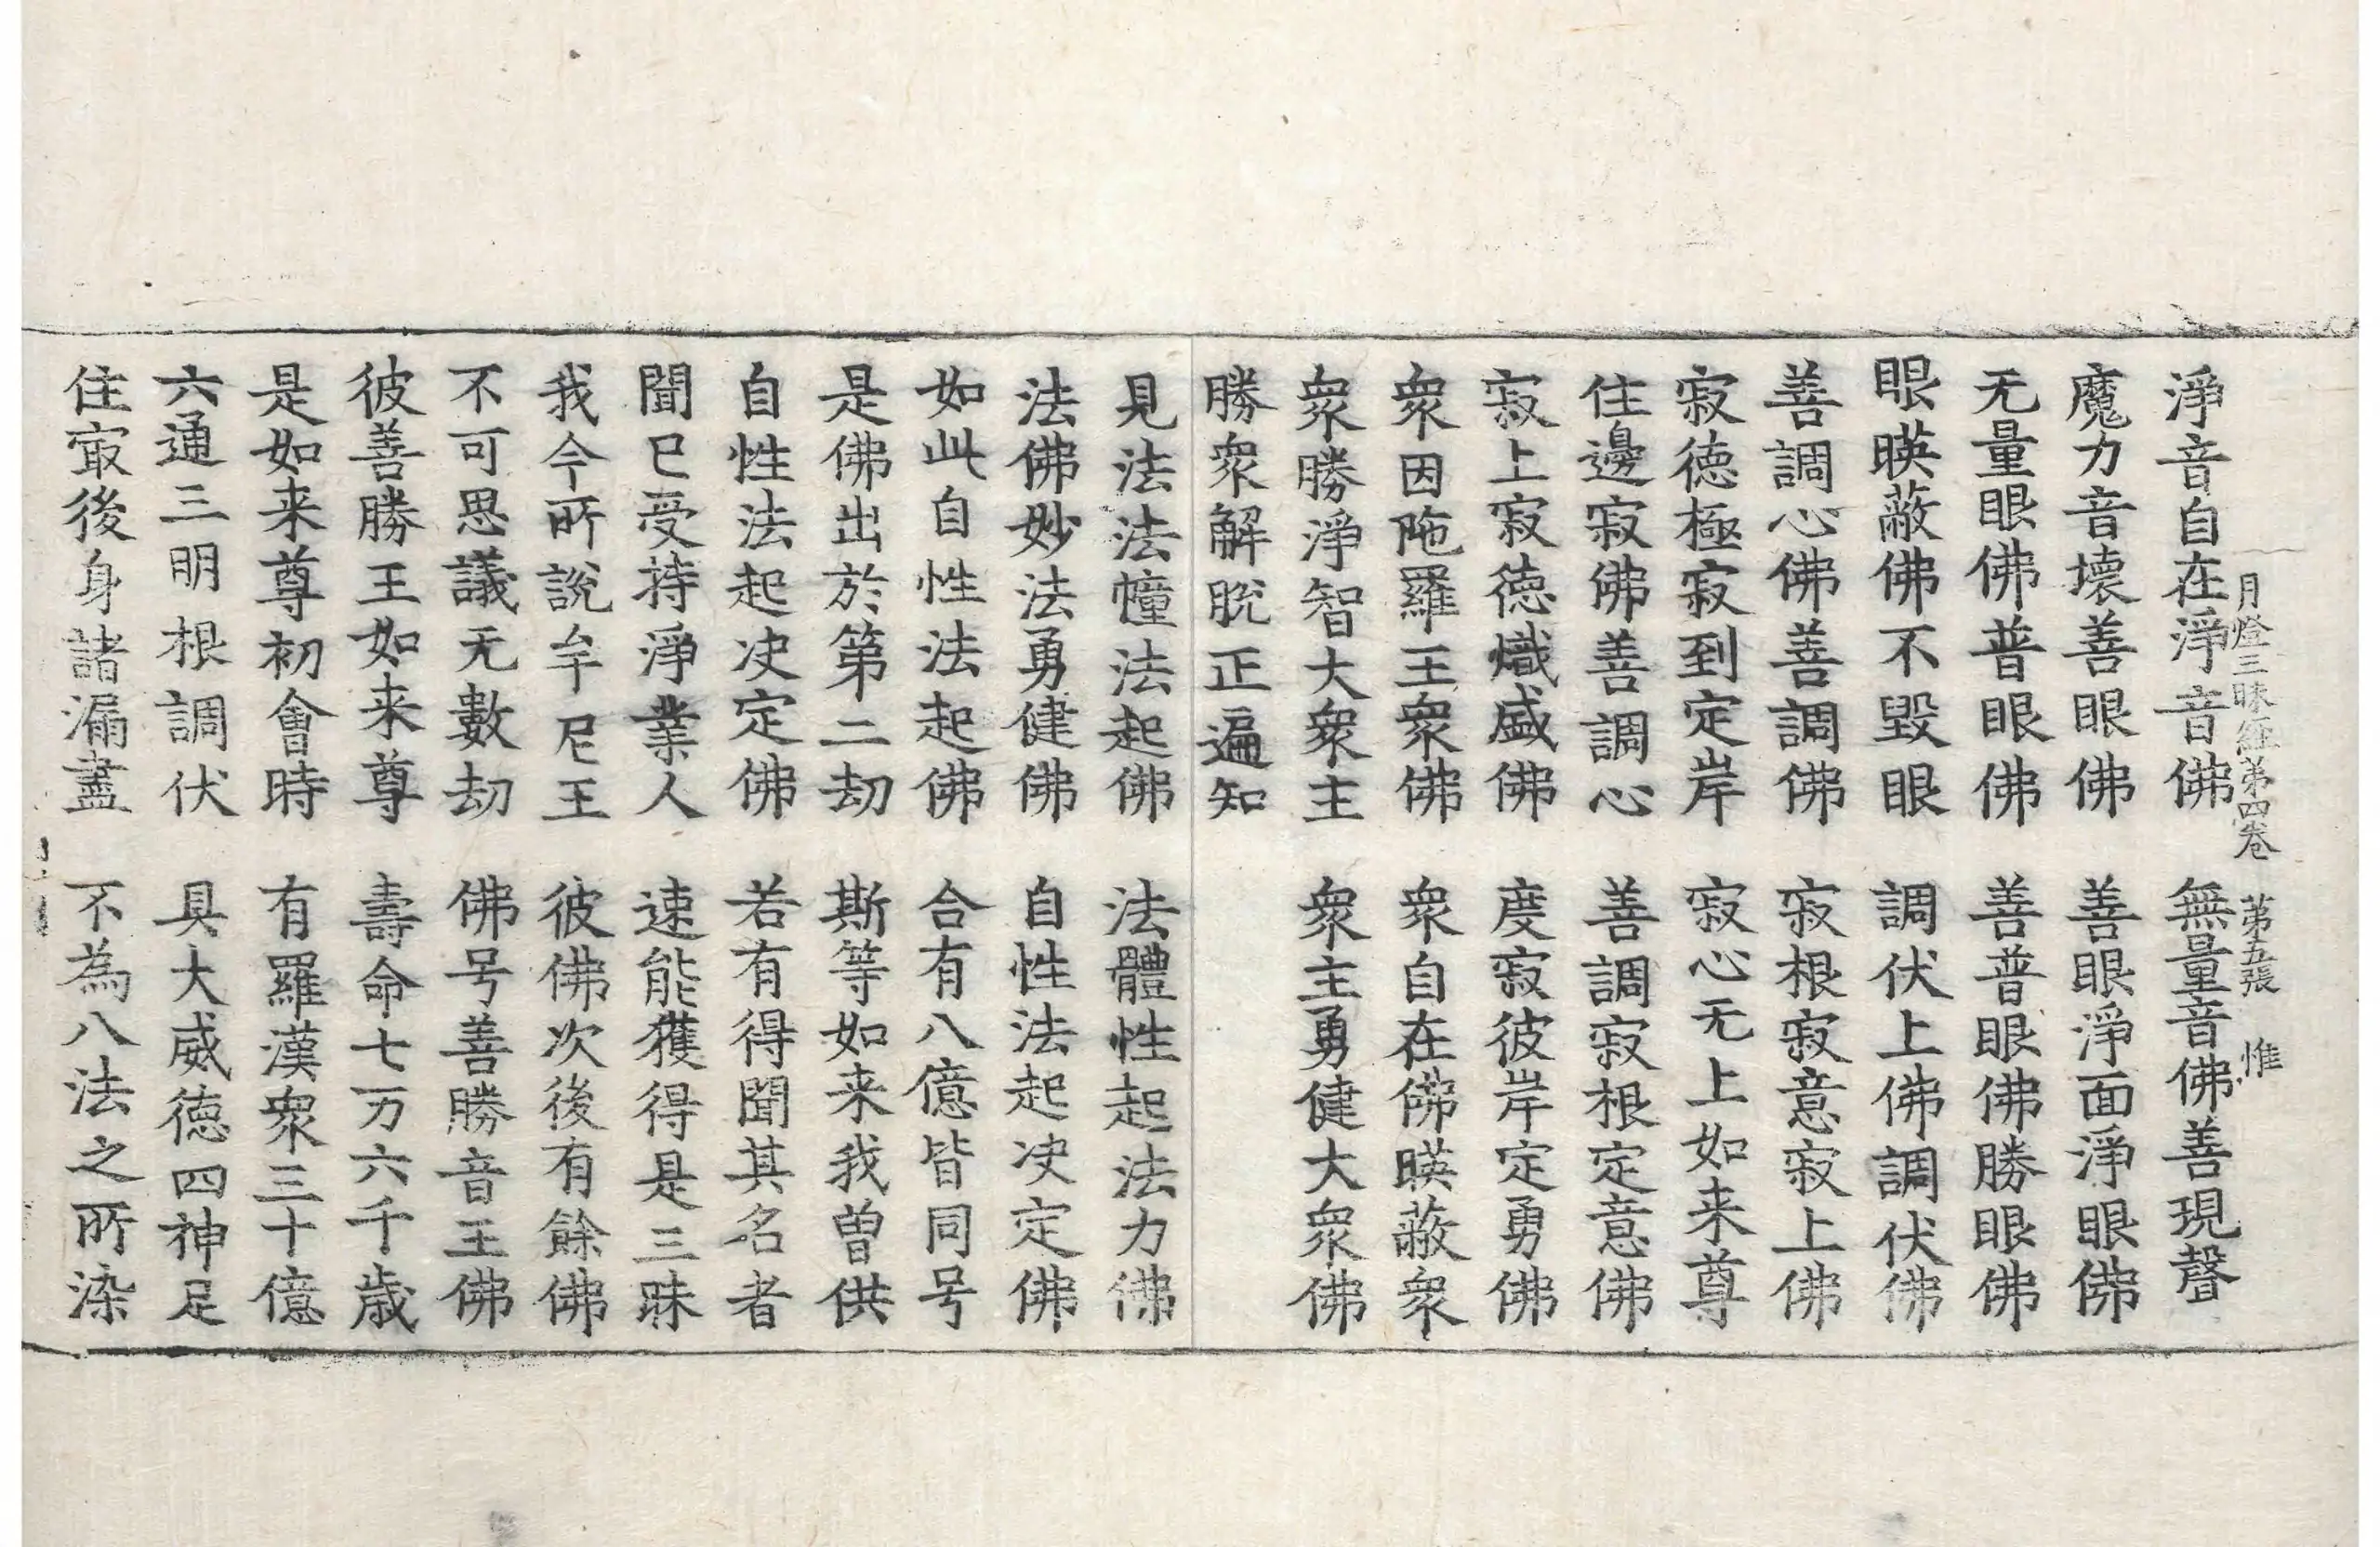 月燈三昧經第四卷 第五張 惟
淨音自在淨音佛 無量音佛善現聲
魔力音壞善眼佛 善眼淨面淨眼佛
无量眼佛普眼佛 善普眼佛勝眼佛
眼暎蔽佛不毀眼 調伏上佛調伏佛
善調心佛善調佛 寂根寂意寂上佛
寂德極寂到定岸 寂心无上如来尊
住邊寂佛善調心 善調寂根定意佛
寂上寂德熾盛佛 度寂彼岸定勇佛
衆因陁羅王衆佛 衆自在佛暎蔽衆
衆勝淨智大衆主 衆主勇健大衆佛
勝衆解脫正遍知
見法法幢法起佛 法體性起法力佛
法佛妙法勇健佛 自性法起决定佛
如此自性法起佛 合有八億皆同号
是佛出於第二劫 斯等如来我曾供
自性法起决定佛 若有得聞其名者
聞已受持淨業人 速能獲得是三昧
我今所說牟尼王 彼佛次後有餘佛
不可思議无數劫 佛号善勝音王佛
彼善勝王如来尊 壽命七万六千歲
是如来尊初會時 有羅漢衆三十億
六通三明根調伏 具大威德四神足
住㝡後身諸漏盡 不為八法之所染